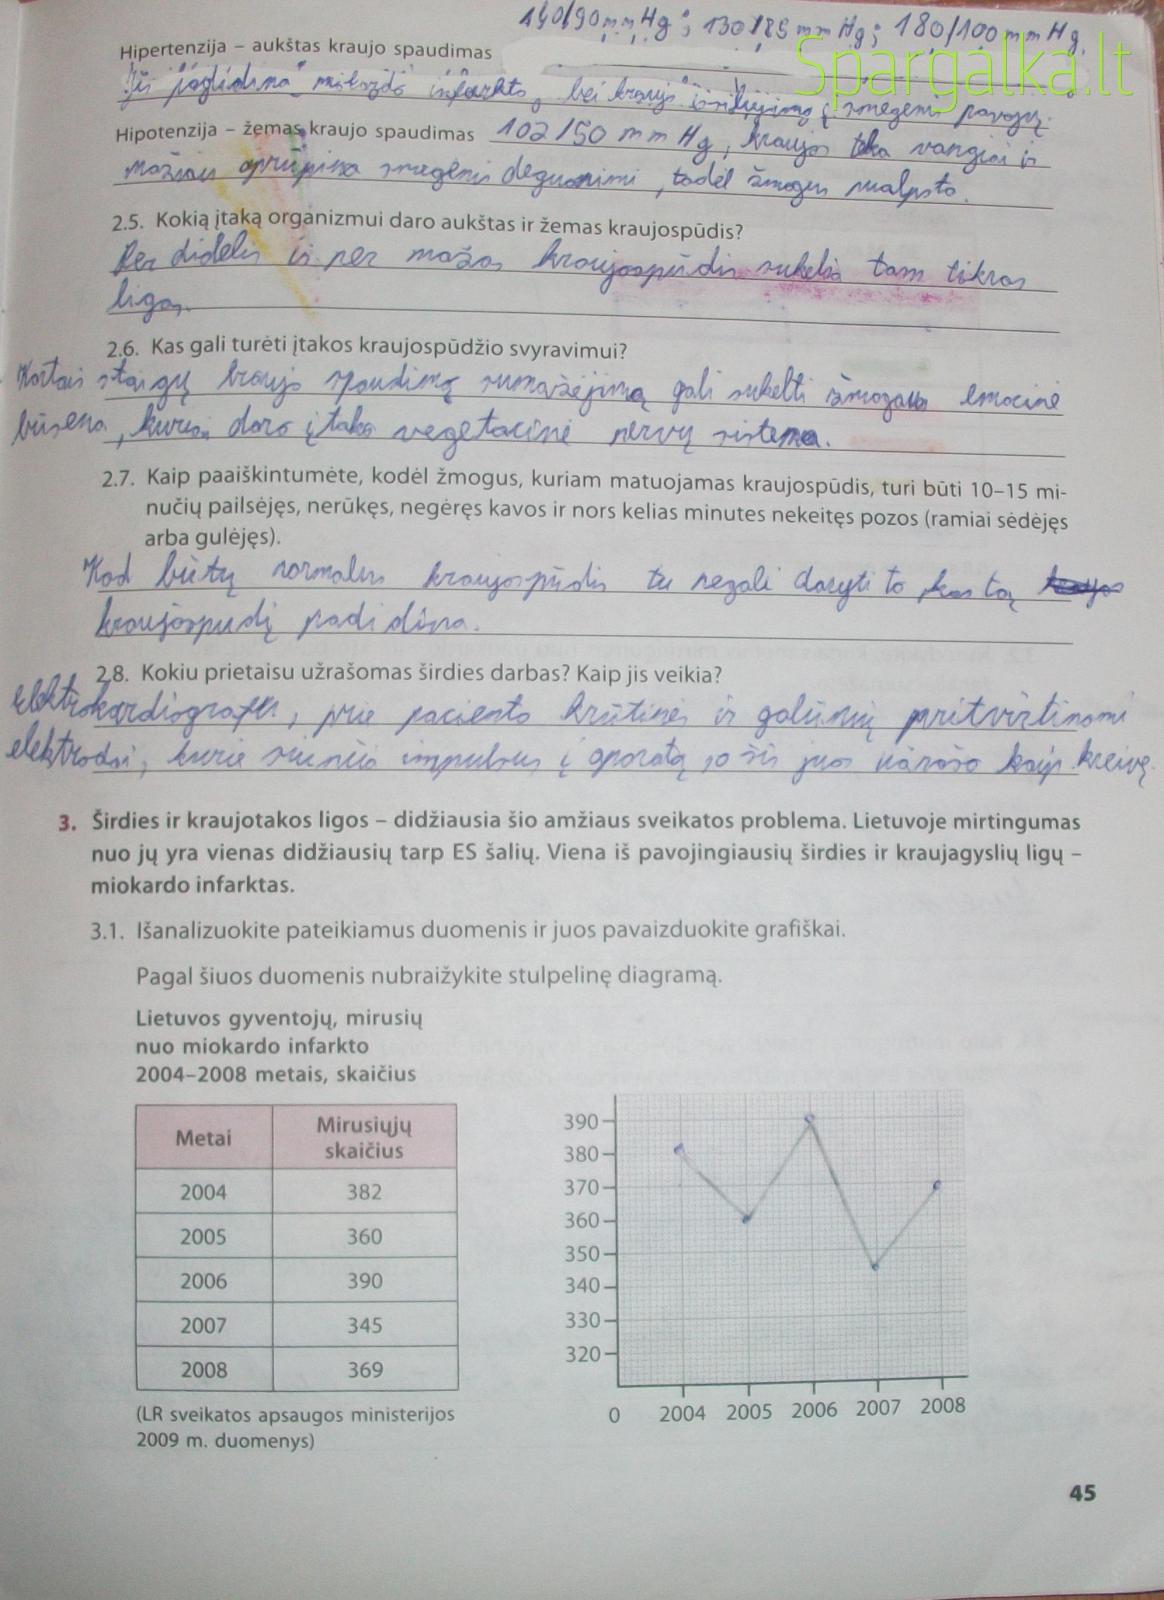 140/90 mm Hg; 130/85 mm Hg; 180/100 mm Hg.
Spargalka.lt
Hipertenzija – aukštas kraujo spaudimas
miokardo infarkto, bei kraujo išsiliejimo į smegenis pavojų.
Hipotenzija – žemas kraujo spaudimas 102/50 mm Hg, kraujas teka vangiai ir
mažiau aprūpina smegenis deguonimi, todėl žmogus nualpsta.
2.5. Kokią įtaką organizmui daro aukštas ir žemas kraujospūdis?
Per didelis ir per mažas kraujospūdis sukelia tam tikras
ligas.
2.6. Kas gali turėti įtakos kraujospūdžio svyravimui?
Kartais staigų kraujo spaudimo sumažėjimą gali sukelti žmogaus emocinė
būsena, kuriai daro įtaka vegetacinė nervų sistema.
2.7. Kaip paaiškintumėte, kodėl žmogus, kuriam matuojamas kraujospūdis, turi būti 10–15 mi-
nučių pailsėjęs, nerūkęs, negėręs kavos ir nors kelias minutes nekeitęs pozos (ramiai sėdėjęs
arba gulėjęs).
Kad būtų normalus kraujospūdis tu negali daryti to kas tą
kraujospudį padidina.
2.8. Kokiu prietaisu užrašomas širdies darbas? Kaip jis veikia?
Elektrokardiografu, prie paciento krūtinės ir galūnių pritvirtinami
elektrodai, kurie siunčia impulsus į aparatą, o šis juos užrašo kaip kreivę.
3. Širdies ir kraujotakos ligos – didžiausia šio amžiaus sveikatos problema. Lietuvoje mirtingumas
nuo jų yra vienas didžiausių tarp ES šalių. Viena iš pavojingiausių širdies ir kraujagyslių ligų –
miokardo infarktas.
3.1. Išanalizuokite pateikiamus duomenis ir juos pavaizduokite grafiškai.
Pagal šiuos duomenis nubraižykite stulpelinę diagramą.
Lietuvos gyventojų, mirusių
nuo miokardo infarkto
2004–2008 metais, skaičius
Metai Mirusiųjų skaičius
2004 382
2005 360
2006 390
2007 345
2008 369
(LR sveikatos apsaugos ministerijos
2009 m. duomenys)
390
380
370
360
350
340
330
320
0 2004 2005 2006 2007 2008
45